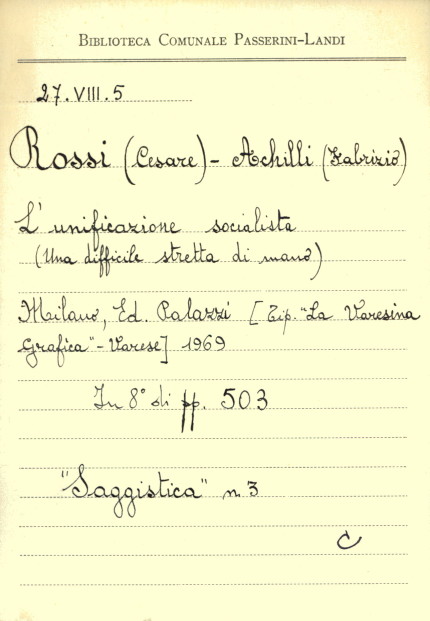 BIBLIOTECA COMUNALE PASSERINI-LANDI
27.VIII.5
Rossi (Cesare) - Achilli (Fabrizio)
L'unificazione socialista
(Una difficile stretta di mano)
Milano, Ed. Palazzi [Tip. "La Varesina
Grafica" - Varese] 1969
In 8° di pp. 503
"Saggistica" n 3
C